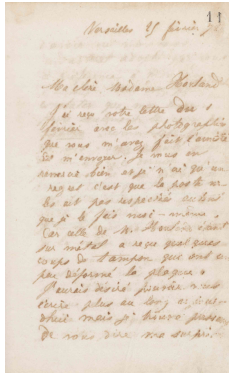 11
Versailles 25 février
Ma chère Madame Houland
J'ai reçu votre lettre du 5
février avec les photographies
que vous m'avez fait l'amitié
de m'envoyer. Je vous en
remercie bien et je n'ai qu'un
regret c'est que la poste ne
les ait pas respectés autant
que je le fais moi-même.
Car celle de M. étant
sur métal a reçu quelques
coups de tampon que ont un
peu déformé la plaque.
J'aurais désiré pouvoir vous
écrire plus au long
mais
de vous dire ma